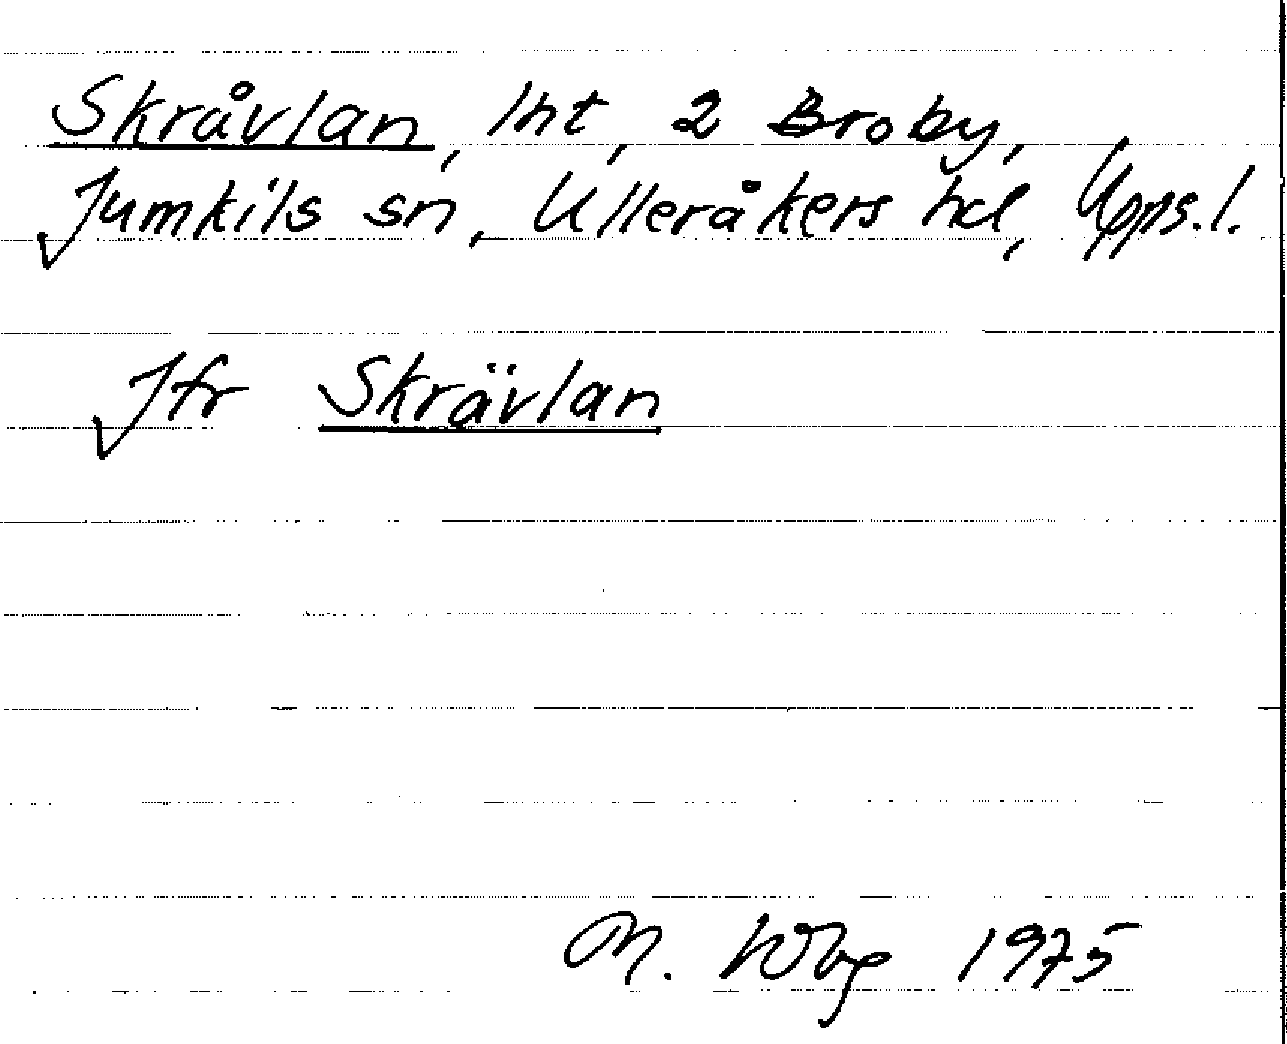 Skråvlan, lht, 2 Broby,
Jumkils sn, Ulleråkers hd, Upps.l.
Jfr Skrävlan
M. Wbg 1975